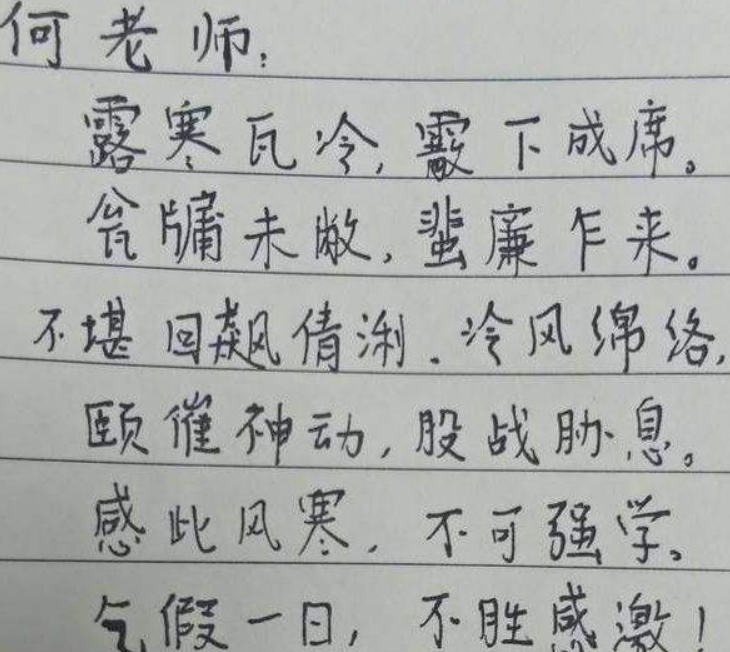 何老师:
露寒瓦冷,霰下成席。
瓮牖未敝,蜚廉乍来。
不堪回飙倩浰.冷风绵络,
颐催神动,股战胁息。
感此风寒,不可强学。
乞假一日,不胜感激!